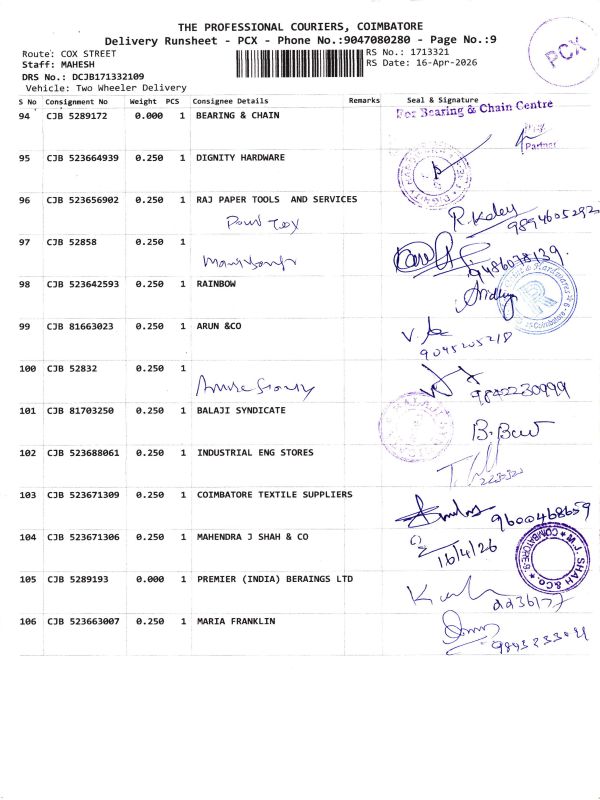 THE PROFESSIONAL COURIERS, COIMBATORE
Delivery Runsheet - PCX - Phone No.:9047080280 - Page No.:9
PCX
Route: COX STREET
RS No.: 1713321
Staff: MAHESH
RS Date: 16-Apr-2026
DRS No.: DCJB171332109
Vehicle: Two Wheeler Delivery
S No Consignment No Weight PCS Consignee Details Remarks Seal & Signature
94 CJB 5289172 0.000 1 BEARING & CHAIN For Bearing & Chain Centre
Partner
95 CJB 523664939 0.250 1 DIGNITY HARDWARE
96 CJB 523656902 0.250 1 RAJ PAPER TOOLS AND SERVICES
9894605292
97 CJB 52858 0.250 1
9486078139.
98 CJB 523642593 0.250 1 RAINBOW
Coimbatore
99 CJB 81663023 0.250 1 ARUN &CO
9045205218
100 CJB 52832 0.250 1
9842230999
101 CJB 81703250 0.250 1 BALAJI SYNDICATE
102 CJB 523688061 0.250 1 INDUSTRIAL ENG STORES
103 CJB 523671309 0.250 1 COIMBATORE TEXTILE SUPPLIERS
9600468659
104 CJB 523671306 0.250 1 MAHENDRA J SHAH & CO
16/4/26
M.J. SHAH & CO. COIMBATORE-9.
105 CJB 5289193 0.000 1 PREMIER (INDIA) BERAINGS LTD
106 CJB 523663007 0.250 1 MARIA FRANKLIN